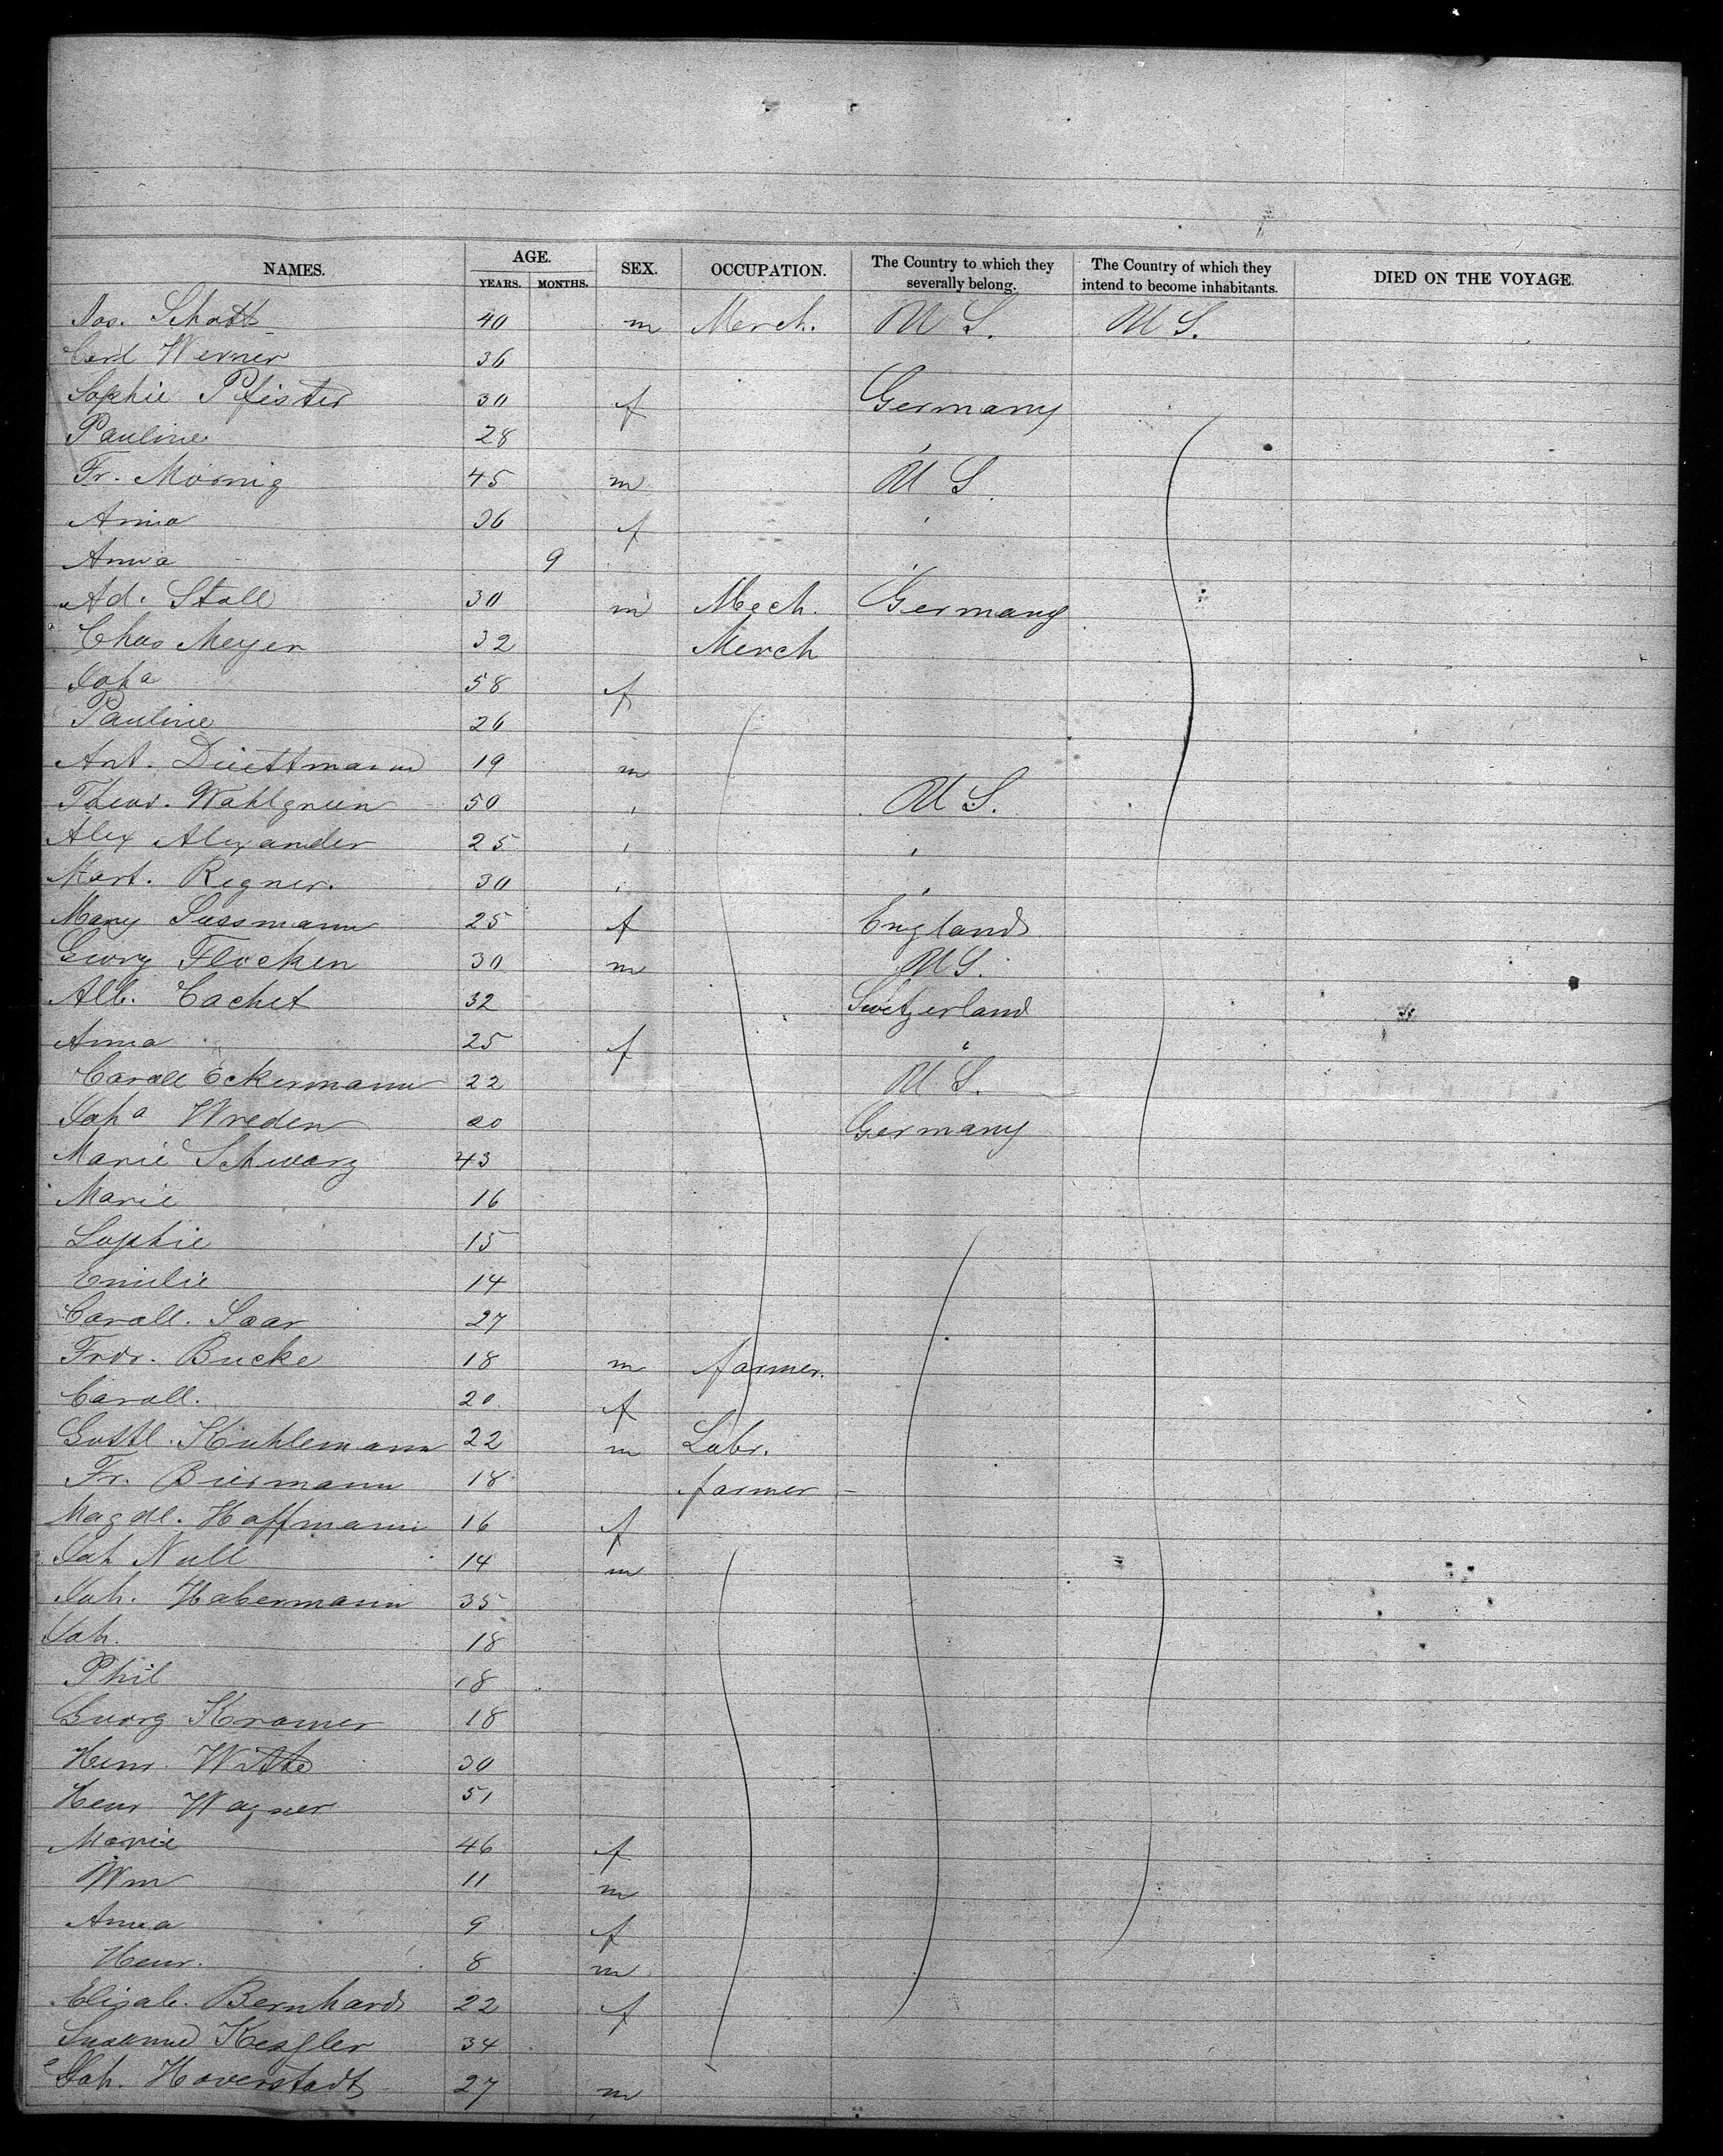 NAMES. AGE. SEX. OCCUPATION. The Country to which they severally belong. The Country of which they intend to become inhabitants. DIED ON THE VOYAGE.
YEARS. MONTHS.
Jos. Schott 40 m Merch. U S. U S.
Carl Werner 36
Sophie Pfister 30 f Germany
Pauline 28 '
Fr. Mornig 45 m U S.
Anna 36 f '
Anna 9 '
Ad. Stoll 30 m Mech. Germany
Chas Meyer 32 Merch
Joha 58 f
Pauline 26
Ant. Duettmann 19 m
Theod. Wahlgreen 50 ' U S.
Alex Alexander 25 ' '
Mart. Regner. 30 ' '
Mary Sussmann 25 f England
Georg Flocken 30 m U S.
Alb. Cachet 32 Switzerland
Anna " 25 f "
Caroll Eckermann 22 U S.
Joha Wreden 20 Germany
Marie Schwarz 43
Marie 16
Sophie 15
Emilie 14
Caroll. Saar 27
Frdr. Bucke 18 m farmer.
Caroll. 20 f
Gottl. Kuhlemann 22 m Labr.
Fr. Biermann 18 farmer -
Magdl. Hoffmann 16 f
Joh Null 14 m
Joh. Habermann 35
Joh. 18
Phil 18
Georg Kramer 18
Henr. Witte 30
Henr Wagner 51
Marie 46 f
Wm 11 m
Anna 9 f
Henr. 8 m
Elisab. Bernhard 22 f
Susanne Kessler 34
Joh. Haverstadt 27 m